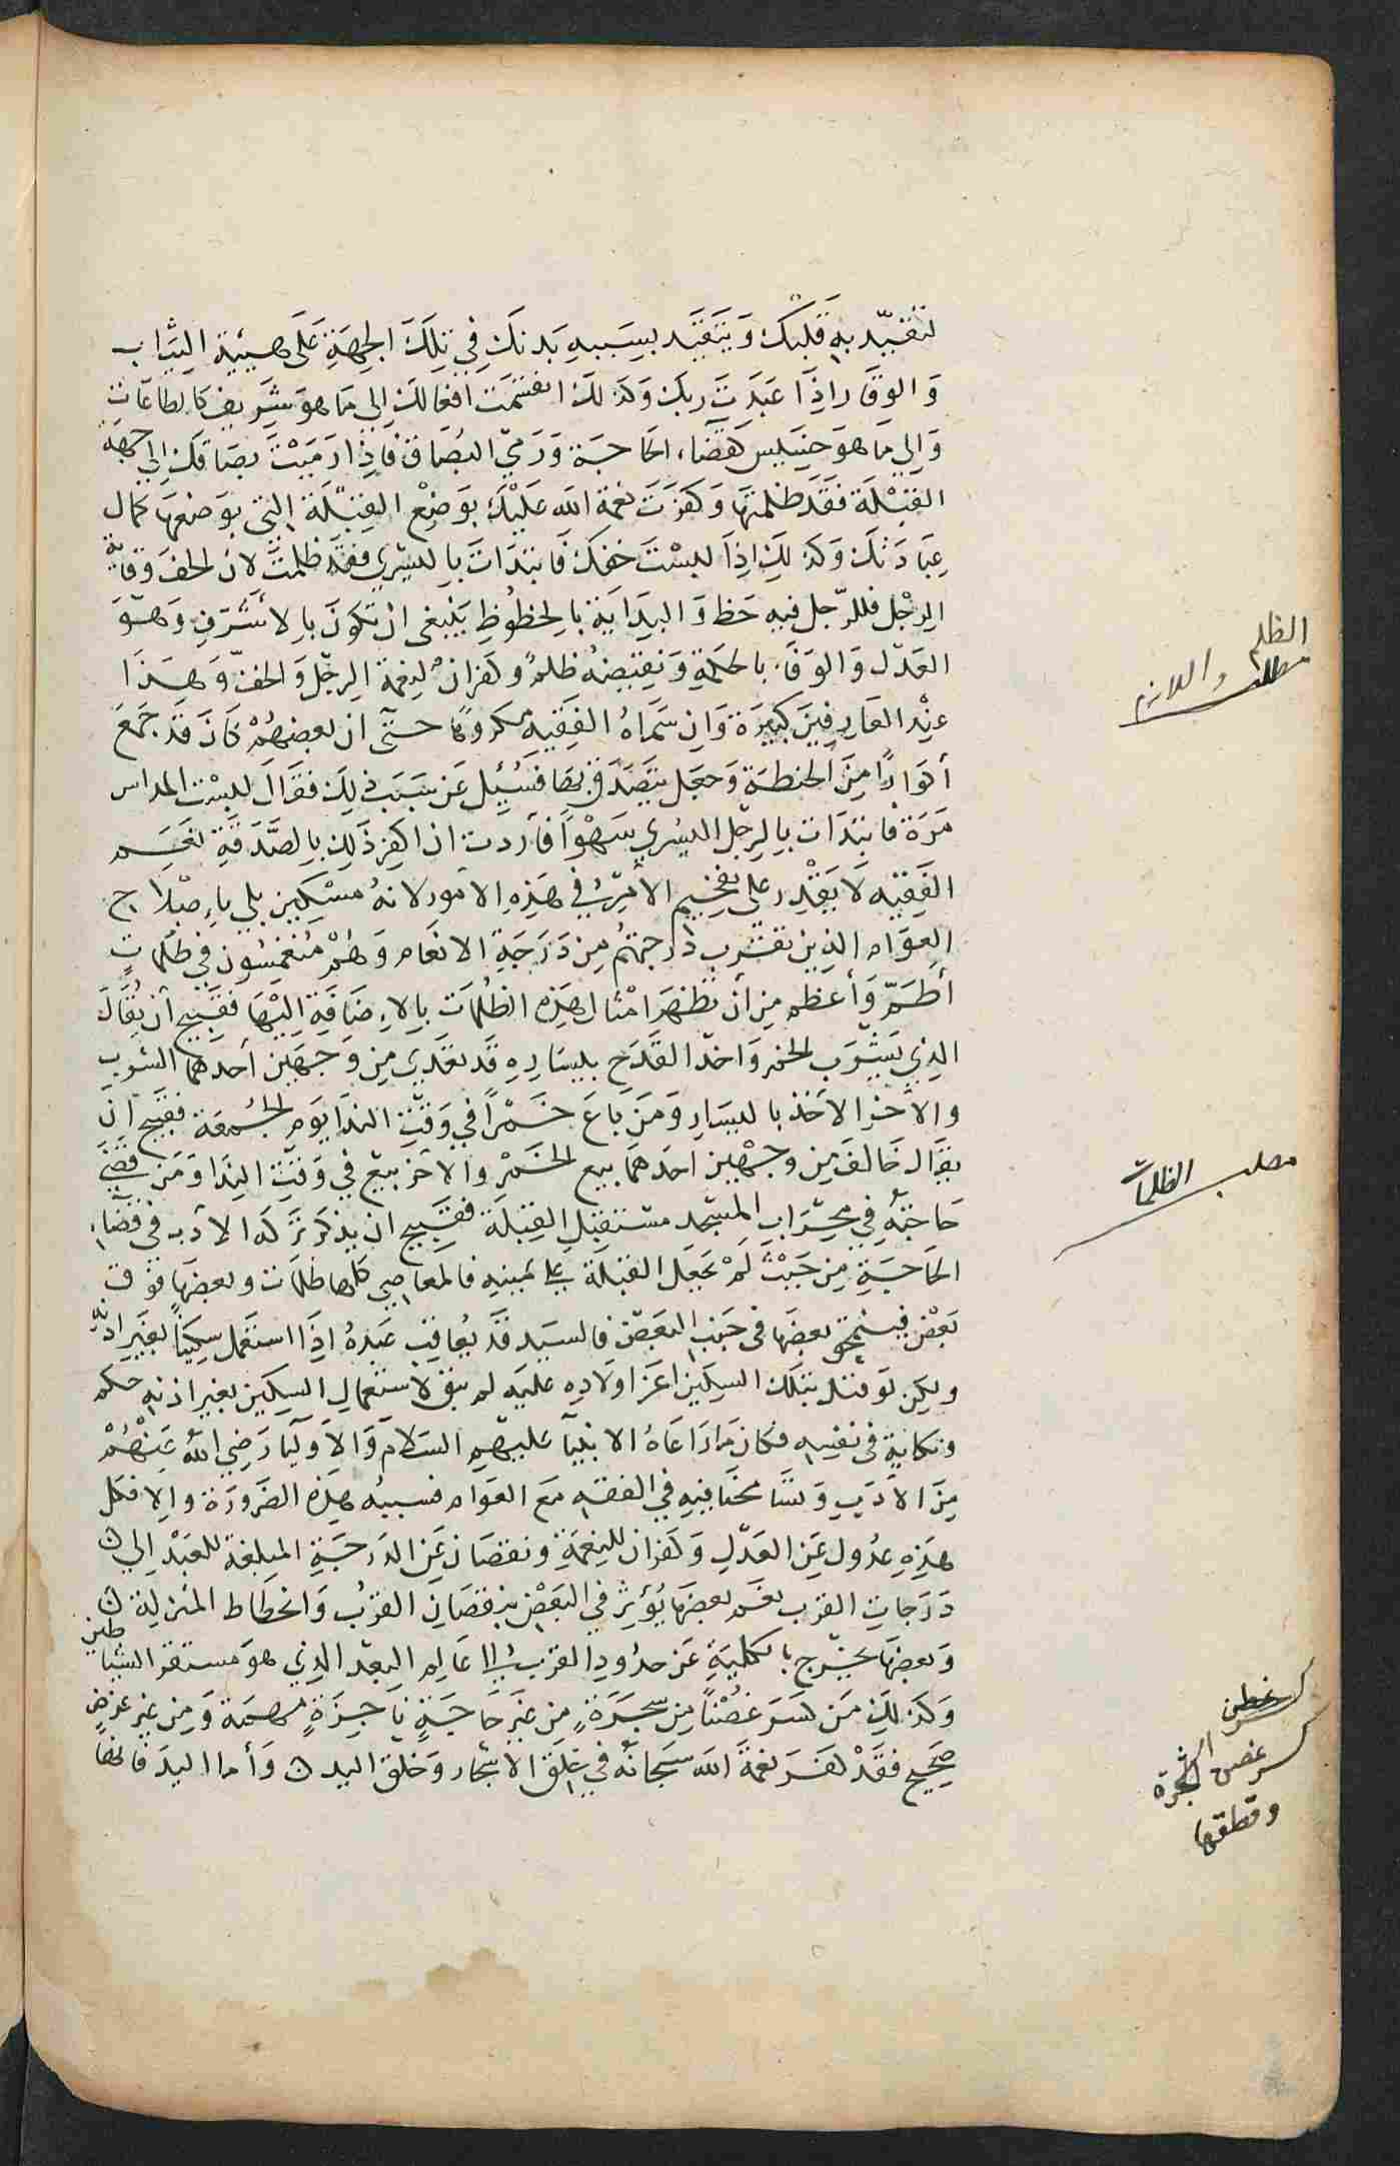 لتقيّد به قلبك وَيتَقيَد بسَببهِ بَدنكَ في تلكَ الجهَةِ عَلَى هيئية الثبَاب
وَالوقَار اذَا عَبَدتَ ربكَ وَكذلكَ انقسَمَت افعَالكَ الي مَا هوَ شرَيف كالطاعَات
وَالي مَا هوَ خسَيس كقضَاء الحاجَة وَرَمي البُصَاق فاذَا رَمَيْتَ بصَاقكَ الي جهَة
القبْلَة فقدَ ظلمتهَا وَكفرَتَ نعمَة الله عَليْكَ بوَضْع القبّلَة التي بوَضعهَا كمال
عبَادَتكَ وَكذلكَ اذَا لبسْتَ خفكَ فَابتدَاتَ باليسْري فقدَ ظلمتَ لان الخفَ وَقايةٌ
الرجْل فللرّجل فيه حَظ وَالبدَاية بالحظوُظِ يَنْبغي انْ تكونَ بالأشْرَف وَهوَ
العَدْل وَالوَفَاء بالحكمَةِ وَنقيضهُ ظلمٌ وكفرانٌ لنعمة الرجْل وَالخفّ وَهذَا
عنْدَ العَارفينَ كبيرَة وَان سَمَاهُ الفقيه مكروهًا حتّي ان بعضهُمْ كانَ قدَ جمَعَ
أكوَارًا منَ الحنطة وَجعَل يتصَدق بهَا فسُئِل عَن سَبَب ذلِكَ فقالَ لبسْت المداس
مَرَة فابتدَات بالرجّل اليسري سَهْوًا فأردت ان اكفر ذَلك بالصَّدَقةِ نعَم
الفقيه لا يقْدر علي تفخيم الأمرُ في هَذهِ الأمور لانهُ مسْكين بلي باءِصْلاح
العوَام الذين تقترب درجتهُم من دَرَجَةِ الانعَام وَهُمْ مُنغمسُون في ظلمات
أطمّ وَأعظم من أن تظهَر امْثال هَذه الظلُمَات بالاءِضَافَةِ اليْهَا فقبيح أن يُقالَ
الذي يَشْرَب الخمر وَاخذ القَدَح بيسَاره قَد تعَدي من وَجهَين أحدهما الشرب
والآخر الأخذ باليسَار وَمَن بَاعَ خَمْرًا في وَقت الندَا يَوم الجُمعَة فقبيح أن
يقَال خَالفَ من وجهْين احَدهمَا بيع الخَمْر والآخر بيع في وَقت الندَا وَمَن قضَي
حَاجتهُ في محرَاب المسْجد مسْتقبل القبْلَة فقبيح ان يذكر ترَكه الأدب في قضَاء
الحَاجَةِ من حَيْث لَمْ يَجعَل القبلَة علي يمينهِ فالمعَاصي كلها ظلمَات وبعضهَا فوق
بَعْض فينمَحي بعضهَا في جَنب البَعض فالسيد قَد يُعاقب عَبدهُ اذَا استعمل سكينًا بغير اذنه
ولكن لوقتل بتلك السكين اعَز اولاده عليَه لم يبق لأستعمال السكين بغير اذنه حكم
ونكاية في نفسه فكان مَا رَاعَاهُ الانبيَا عليهم السَلام وَالأوليَا رَضي الله عَنهُمْ
منَ الأدَب وَتسَامحنَا فيه في الفقه مَع العَوَام فسببه هَذه الضرورَة والا فكل
هَذهِ عدُول عَن العَدْل وَكفران للنعمَةِ ونقصَان عَن الدَرجَةِ المبلغة للعَبْد الي
دَرَجات القرب نعَم بعضهَا يُؤثر في البَعْض بنقصَان القرْب وَانحطَاط المنزلة
وَبعضهَا يخرّج بالكليَةِ عَن حدُود القرب الي عَالم البعْد الذي هوَ مستقر الشيَاطين
وَكذلك مَن كسَر غصْنًا من شجَرَةٍ من غيَر حَاجَةٍ ناجزَةٍ مهمَة وَمن غير غرض
صَحيح فقَدْ كفرَ نعمَة الله سبحَانَه في خَلق الأشجار وَخلق اليدن وَأما اليدَ فانها
الظلم
مطلب واللازم
مطلب الظلمات
كسر غصن الشجرة
وقطعها